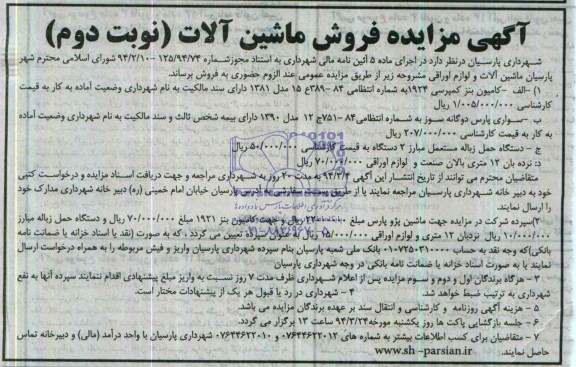 آگهی مزایده فروش ماشین آلات (نوبت دوم)
شهرداری پارسیان درنظر دارد در اجرای ماده ۵ آئین نامه مالی شهرداری به استناد مجوزشماره ۱۲۵/۹۴/۷۴ –۹۴/۲/۱۰ شورای اسلامی محترم شهر
پارسیان ماشین آلات و لوازم اوراقی مشروحه زیر از طریق مزایده عمومی عند الزوم حضوری به فروش برساند.
۱) –الف –کامیون بنز کمپرسی ۱۹۲۴به شماره انتظامی ۸۴ –۳۸۹ع ۱۵ مدل ۱۳۸۱ دارای سند مالکیت به نام شهرداری وضعیت آماده به کار به قیمت
کارشناسی ۱/۰۰۵/۰۰۰/۰۰۰ ریال
ب –سواری پارس دوگانه سوز به شماره انتظامی۸۴ –۷۵۱ج ۱۲ مدل ۱۳۹۰ دارای بیمه شخص ثالث و سند مالکیت به نام شهرداری وضعیت آماده
به کار به قیمت کارشناسی ۲۰۷/۰۰۰/۰۰۰ ریال
ج – دستگاه حمل زباله مستعمل مبارز ۲ دستگاه به قیمت کارشناسی ۵۰/۰۰۰/۰۰۰ ریال
د: نرده بان ۱۲ متری بالان صنعت و لوازم اوراقی ۷۰/۰۰۰/۰۰۰ ریال
متقاضیان محترم می توانند از تاریخ انتشار این آگهی ۹۴/۳/۴ به مدت ۲۰ روز به شهرداری مراجعه و جهت دریافت اسناد مزایده و درخواست کتبی
خود به دبیر خانه شهرداری پارسیان مراجعه نمایند یا از طریق پست سفارشی به آدرس پارسیان خیابان امام خمینی (ره) دبیر خانه شهرداری مدارک خود
را ارسال نمایند.
۲)سپرده شرکت در مزایده جهت ماشین پژو پارس مبلغ ریال و جهت کامیون بنز ۱۹۲۱ مبلغ ۷۰/۰۰۰/۰۰۰ ریال و دستگاه حمل زباله مبارز
۱۰/۰۰۰/۰۰۰ ریال نردبان ۱۲ متری و لوازم اوراقی ریال به عنوان سپرده تعیین می گردد ، که به صورت (نقد یا اسناد خزانه یا ضمانت نامه
بانکی)که وجه نقد به حساب ۰۱۰۷۲۵۰۳۱۰۰۰۰ بانک ملی شعبه پارسیان بنام سپرده شهرداری پارسیان واریز و فیش مربوطه را به همراه درخواست ارسال
نمایند یا به صورت اسناد خزانه یا ضمانت نامه بانکی در وجه شهرداری پارسیان
۳ – هرگاه برندگان اول و دوم و سوم مزایده پس از اعلام شهرداری ظرف مدت ۷ روز نسبت به واریز مبلغ پیشنهادی اقدام ننمایند سپرده آنها به نفع
شهرداری به ترتیب ضبط خواهد شد. ۴ – شهرداری در رد یا قبول هر یک از پیشنهادات مختار است.
۵ – هزینه آگهی روزنامه و کارشناسی و انتقال سند بر عهده برندگان مزایده می باشد.
۶ – جلسه بازگشایی پاکت ها روز یکشنبه مورخه۹۴/۳/۲۴ ساعت ۱۳ برگزار می گردد.
۷ – متقاضیان برای کسب اطلاعات بیشتر به شماره های ۰۷۶۴۴۶۲۲۰۱۲ و ۰۷۶۴۴۶۲۲۰۱۰ شهرداری پارسیان با واحد درآمد (مالی) و دبیرخانه تماس
حاصل نمایند. www.sh-parsian.ir